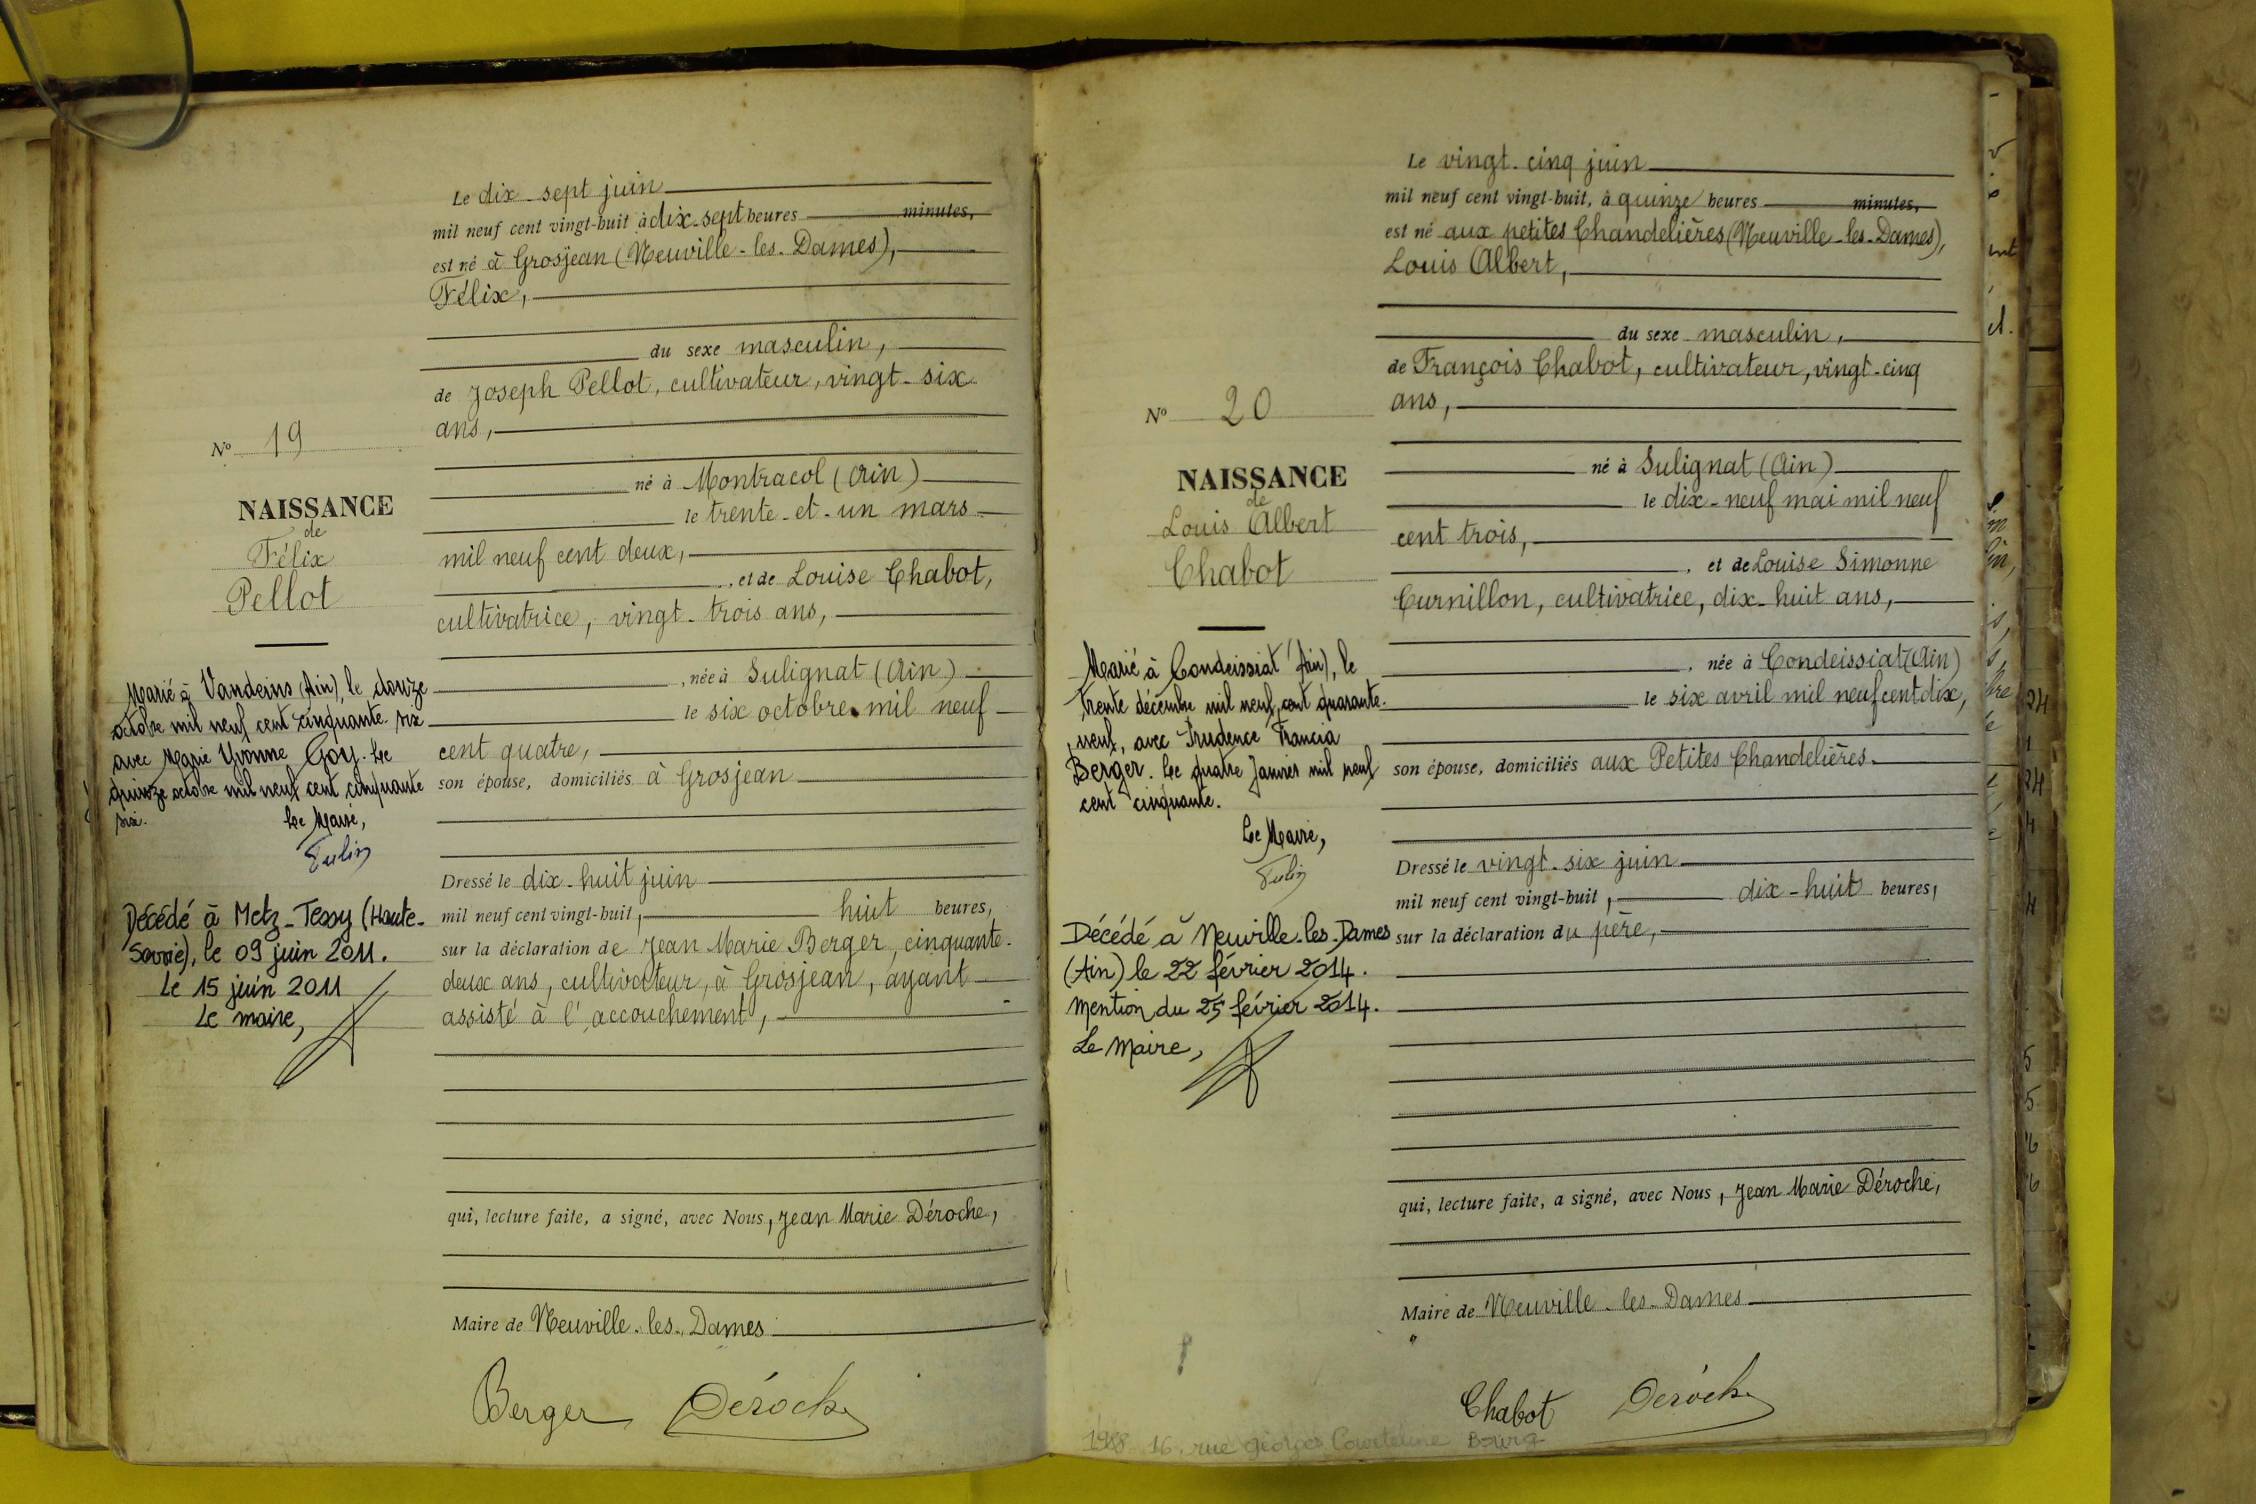 Le dix-sept juin
mil neuf cent vingt-huit à dix-sept heures minutes,
est né à Grosjean (Neuville-les-Dames),
Félix,
du sexe masculin,
de Joseph Pellot, cultivateur, vingt-six
ans,
N° 19
né à Montracol (Ain)
NAISSANCE
le trente-et-un mars
de
Félix
mil neuf cent deux,
Pellot
, et de Louise Chabot,
cultivatrice, vingt-trois ans,
, née à Sulignat (Ain)
le six octobre mil neuf
cent quatre,
son épouse, domiciliés à Grosjean
Marié à Vandeins (Ain), le douze
octobre mil neuf cent cinquante-six
avec Marie Yvonne Goy. Le
quinze octobre mil neuf cent cinquante
six.
Le Maire,
Dressé le dix-huit juin
mil neuf cent vingt-huit, huit heures,
sur la déclaration de Jean Marie Berger, cinquante-
deux ans, cultivateur, à Grosjean, ayant
assisté à l'accouchement,
Décédé à Metz-Tessy (Haute-
Savoie), le 09 juin 2011.
Le 15 juin 2011
Le maire,
qui, lecture faite, a signé, avec Nous, Jean Marie Déroche,
Maire de Neuville-les-Dames
Berger Déroche
Le vingt-cinq juin
mil neuf cent vingt-huit, à quinze heures minutes,
est né aux petites Chandelières (Neuville-les-Dames),
Louis Albert,
du sexe masculin,
de François Chabot, cultivateur, vingt-cinq
ans,
N° 20
né à Sulignat (Ain)
NAISSANCE
le dix-neuf mai mil neuf
de
Louis Albert
cent trois,
Chabot
, et de Louise Simonne
Curnillon, cultivatrice, dix-huit ans,
, née à Condeissiat (Ain)
le six avril mil neuf cent dix,
son épouse, domiciliés aux Petites Chandelières.
Marié à Condeissiat (Ain), le
trente décembre mil neuf cent quarante-
neuf, avec Prudence Francia
Berger. Le quatre Janvier mil neuf
cent cinquante.
Le Maire,
Dressé le vingt-six juin
mil neuf cent vingt-huit, dix-huit heures,
sur la déclaration du père,
Décédé à Neuville-les-Dames
(Ain) le 22 février 2014.
Mention du 25 février 2014.
Le Maire,
qui, lecture faite, a signé, avec Nous, Jean Marie Déroche,
Maire de Neuville-les-Dames
Chabot Déroche
16, rue Georges Courteline Bourg